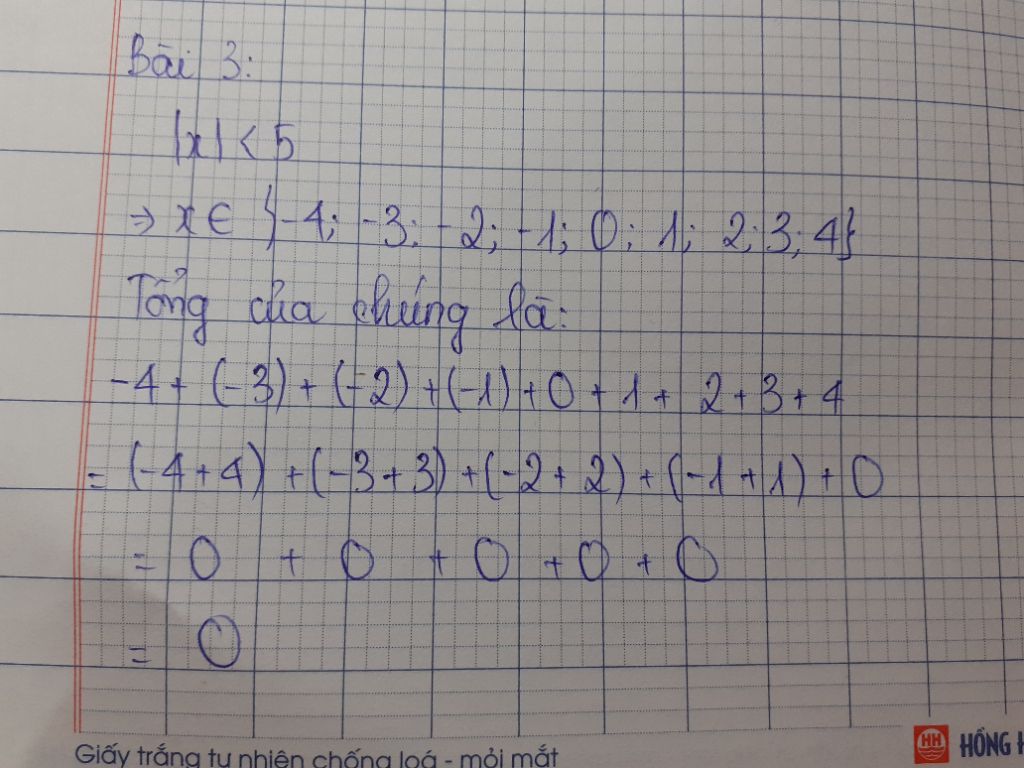 Bài 3:
|x| < 5
→ x ∈ {-4; -3; -2; -1; 0; 1; 2; 3; 4}
Tổng của chúng là:
-4 + (-3) + (-2) + (-1) + 0 + 1 + 2 + 3 + 4
= (-4 + 4) + (-3 + 3) + (-2 + 2) + (-1 + 1) + 0
= 0 + 0 + 0 + 0 + 0
= 0
Giấy trắng tự nhiên chống loá - mỏi mắt
HH HỒNG H